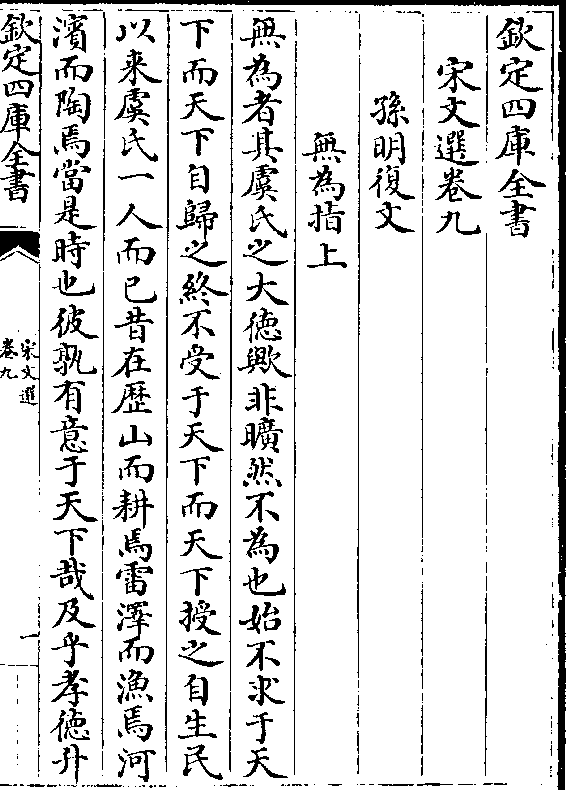 欽定四庫全書
宋文選卷九
孫明復文
無為指上
無為者其虞氏之大徳歟非曠然不為也始不求于天
下而天下自歸之終不受于天下而天下授之自生民
以来虞氏一人而已昔在歴山而耕焉雷澤而漁焉河
濱而陶焉當是時也彼孰有意于天下哉及乎孝徳升
欽定四庫全書
宋文選
卷九
一